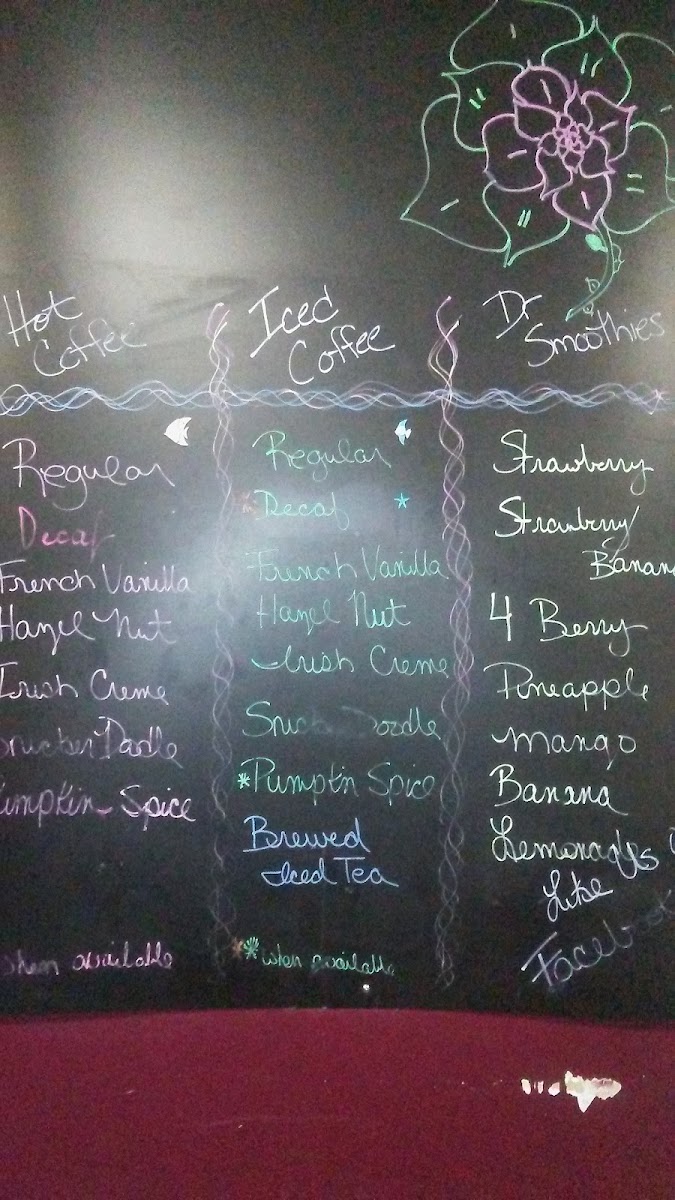 Hot
Coffee
Regular
Decaf
French Vanilla
Hazel Nut
Irish Creme
Snicker Dodle
Pumpkin Spice
when available
Iced
Coffee
Regular
*Decaf *
French Vanilla
Hazel Nut
Irish Creme
Doodle
*Pumpkin Spice
Brewed
Iced Tea
** when available
Dr
Smoothies
Strawberry
Strawberry
Banana
4 Berry
Pineapple
Mango
Banana
Lemonade
Like us
Facebook